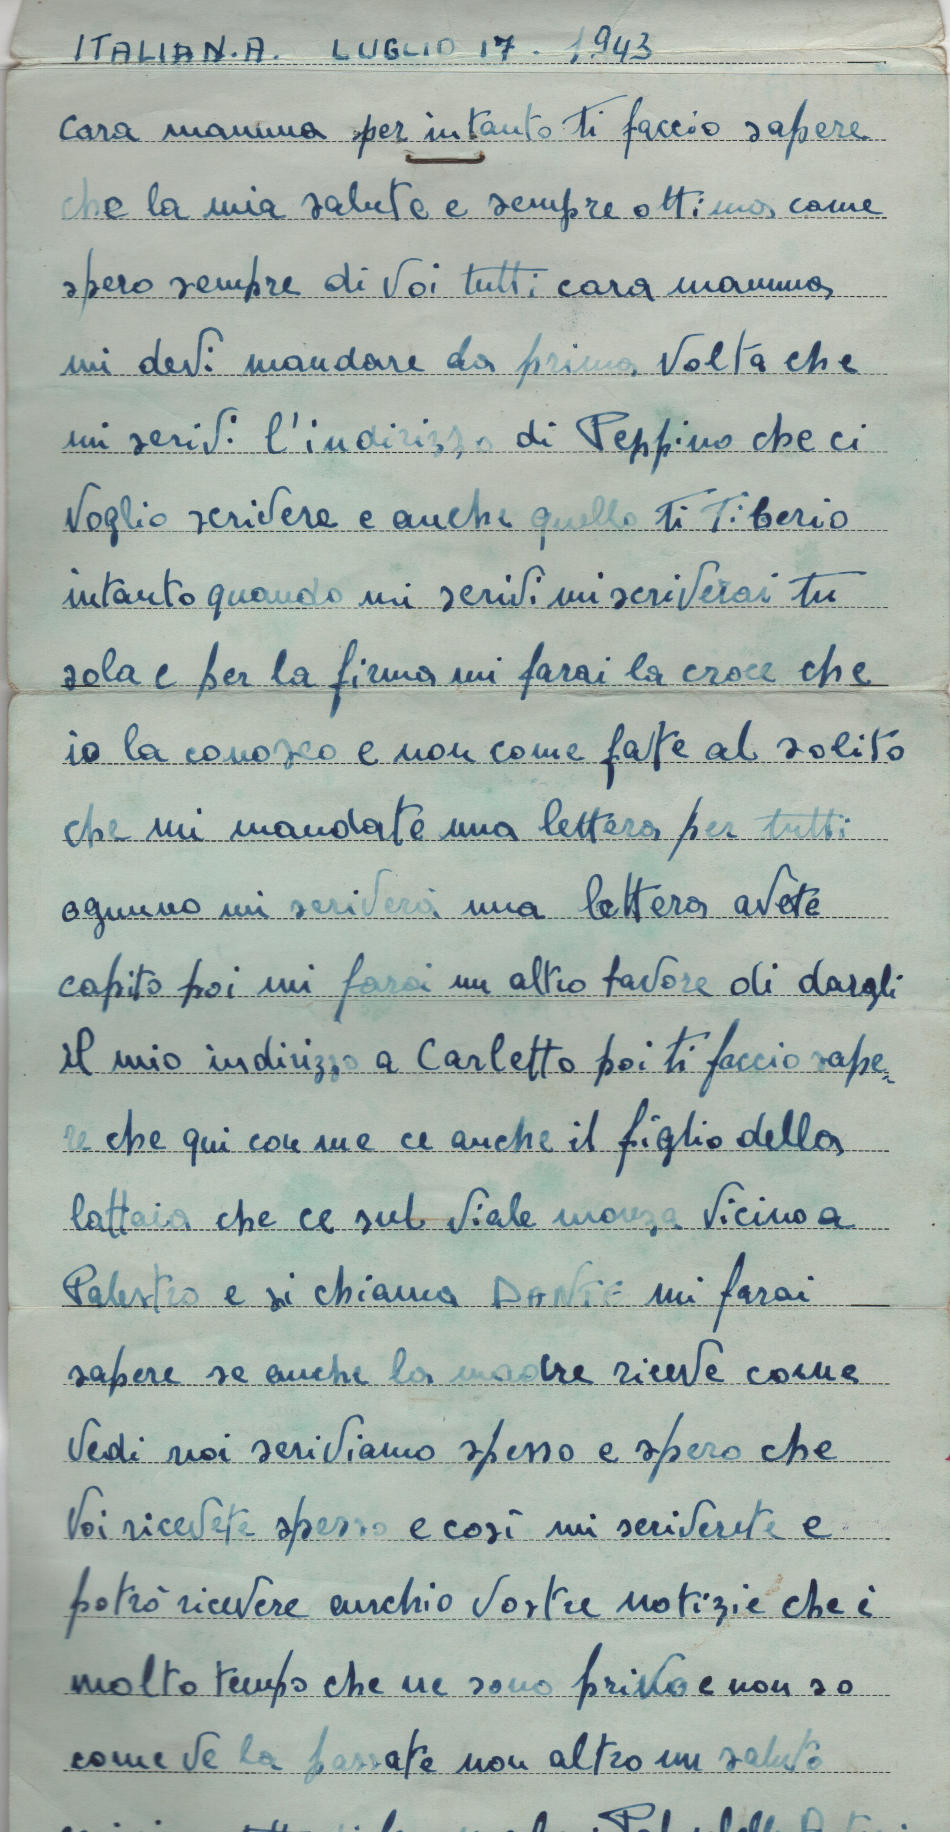 ITALIAN.A. LUGLIO 17. 1943
cara mamma per intanto ti faccio sapere
che la mia salute e sempre ottima come
spero sempre di voi tutti cara mamma
mi devi mandare la prima volta che
mi scrivi l'indirizzo di Peppino che ci
voglio scrivere e anche quello ti Tiberio
intanto quando mi scrivi mi scriverai tu
sola e per la firma mi farai la croce che
io la conosco e non come fate al solito
che mi mandate una lettera per tutti
ognuno mi scriverà una lettera avete
capito poi mi farai un altro favore di dargli
il mio indirizzo a Carletto poi ti faccio sape-
re che qui con me ce anche il figlio della
lattaia che ce sul viale monza vicino a
Palestro e si chiama DANTE mi farai
sapere se anche la madre riceve come
vedi noi scriviamo spesso e spero che
voi ricevete spesso e così mi scriverete e
potrò ricevere anchio vostre notizie che è
molto temps che ne sono privo e non so
come ve la passate non altro un saluto